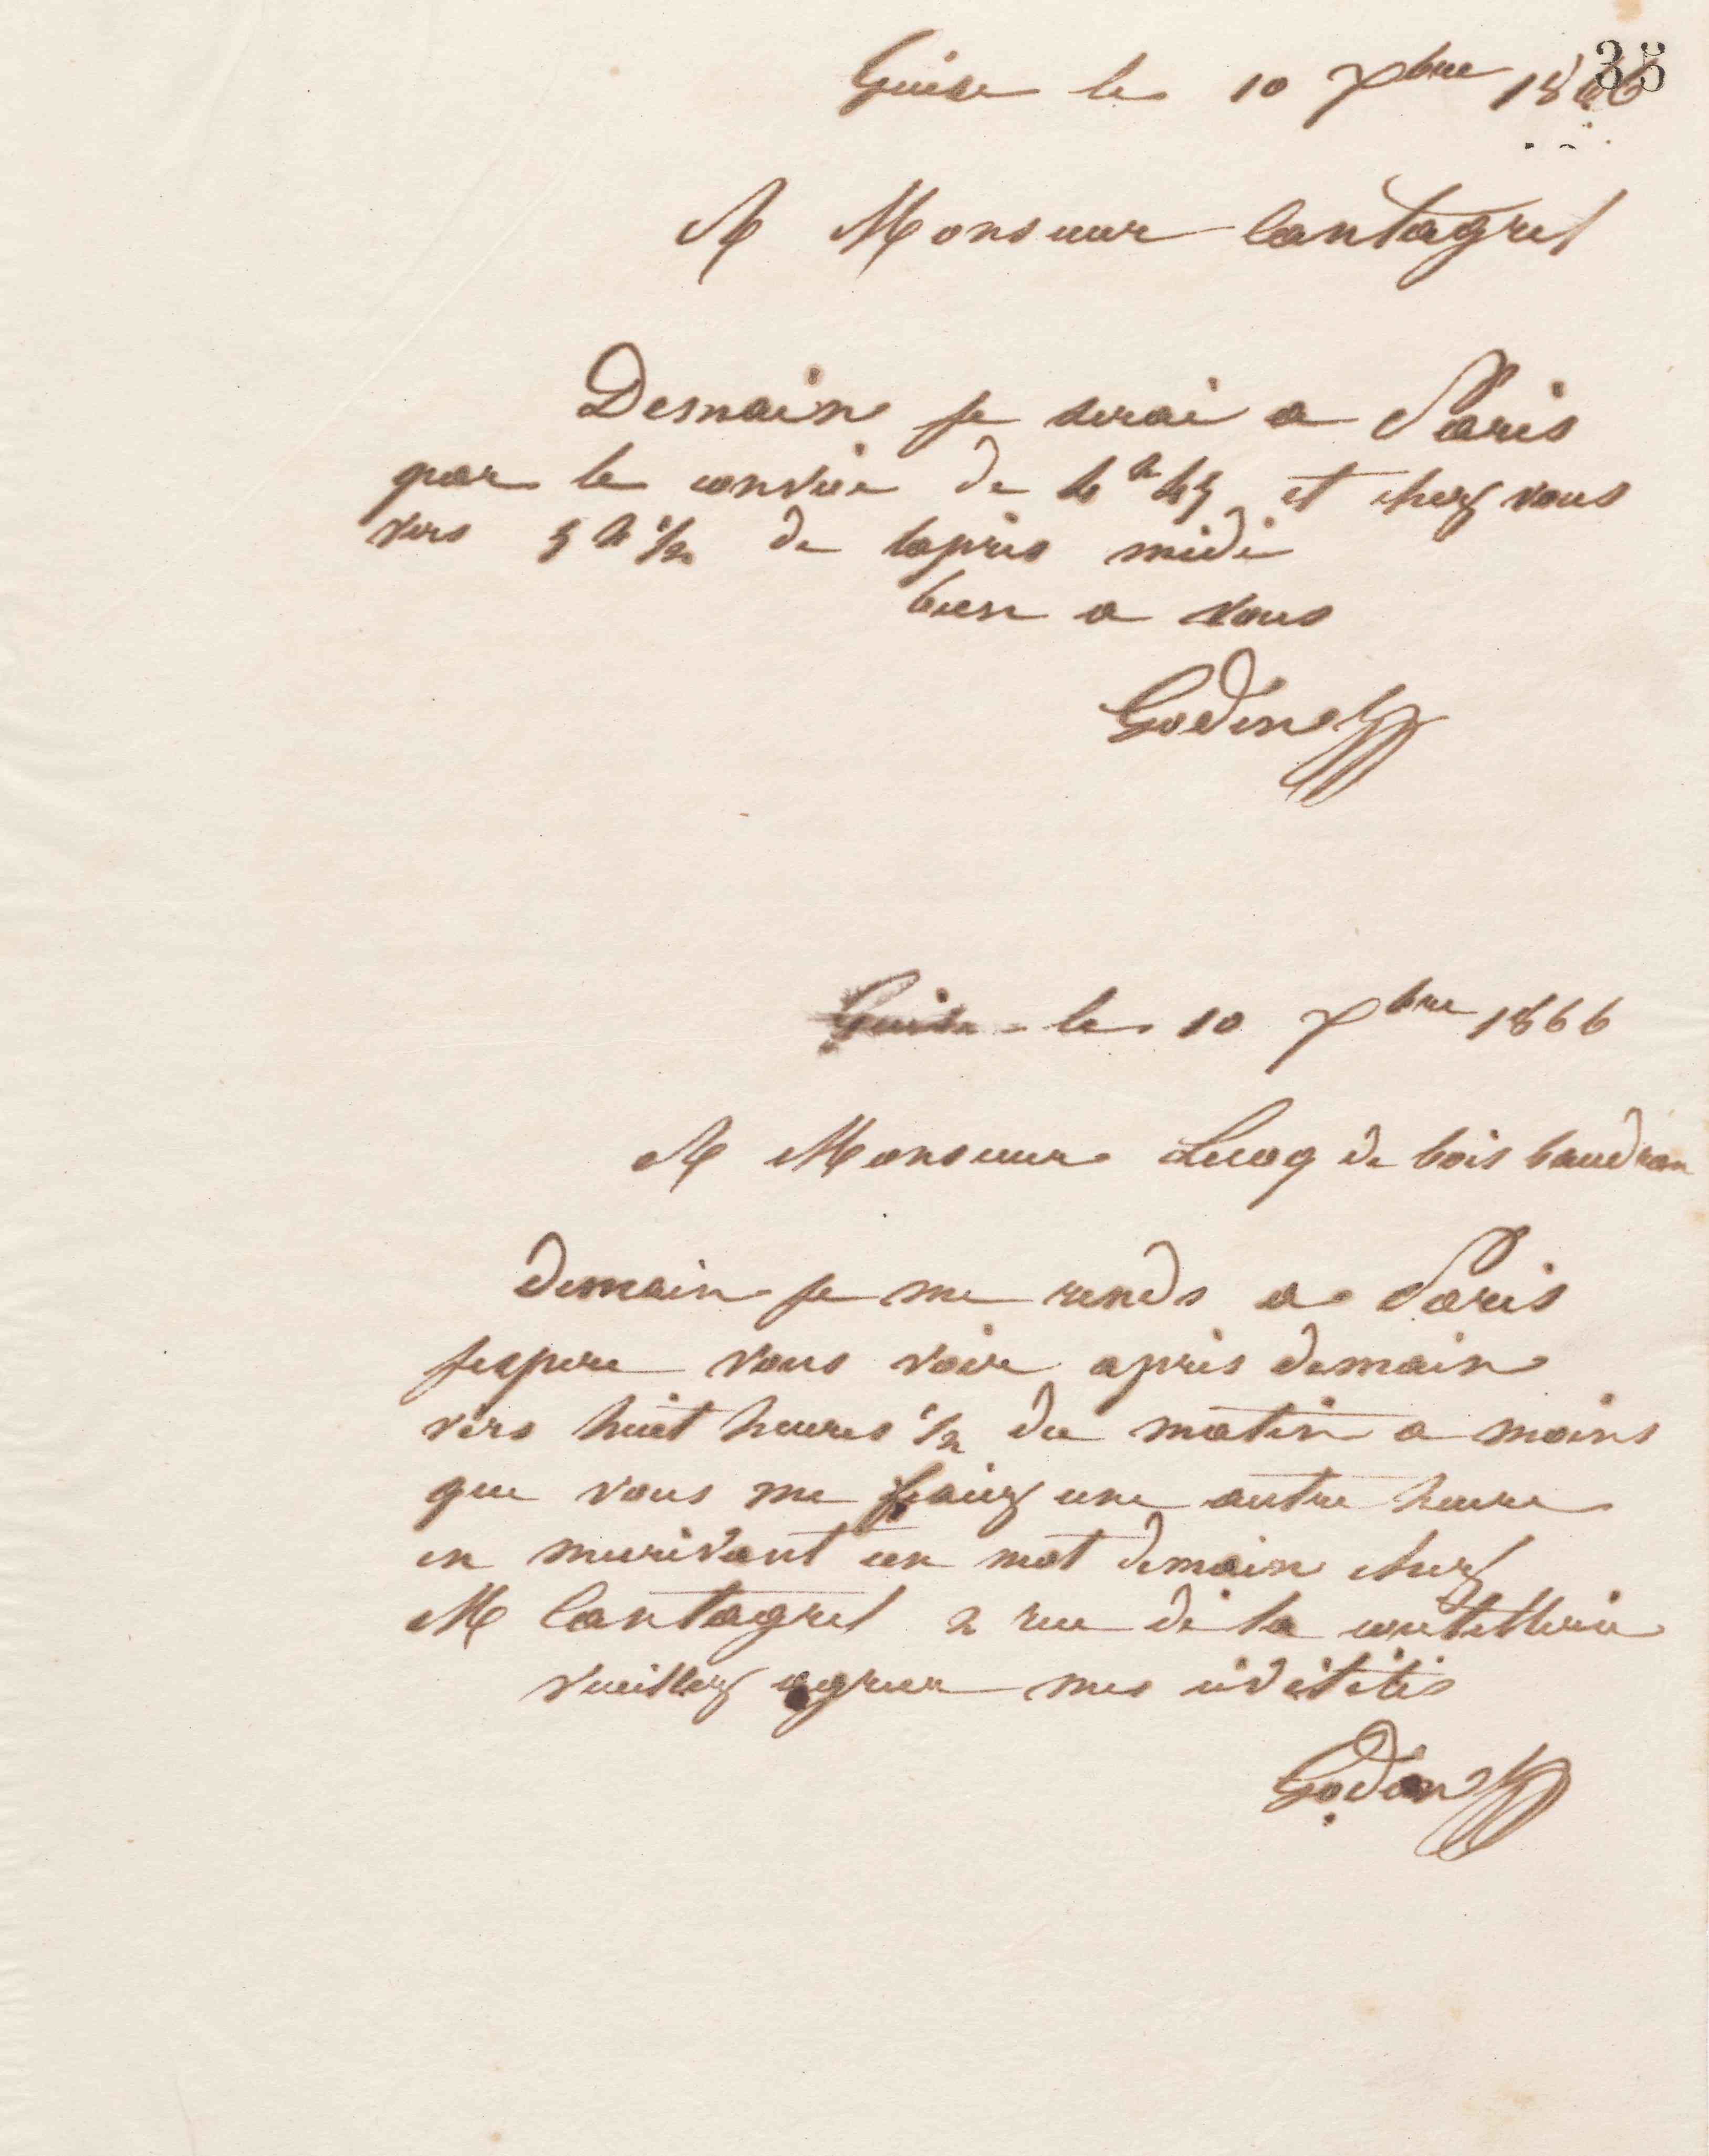 35
Guise le 10 Xbre 1866
A Monsieur Cantagrel
Demain je serai a Paris
par le convoi de 4h 45 et chez vous
vers 5 h 1/2 de lapres midi
bien a vous
Godin
Guise le 10 Xbre 1866
A Monsieur Lecoq de bois baudran
Demain je me rends a Paris
jespere vous voir après demain
vers huit heures 1/2 du matin a moins
que vous me fixiez une autre heure
en mecrivant un mot demain chez
M Cantagrel 2 rue de la coutellerie
veuillez agreer mes civilités
Godin